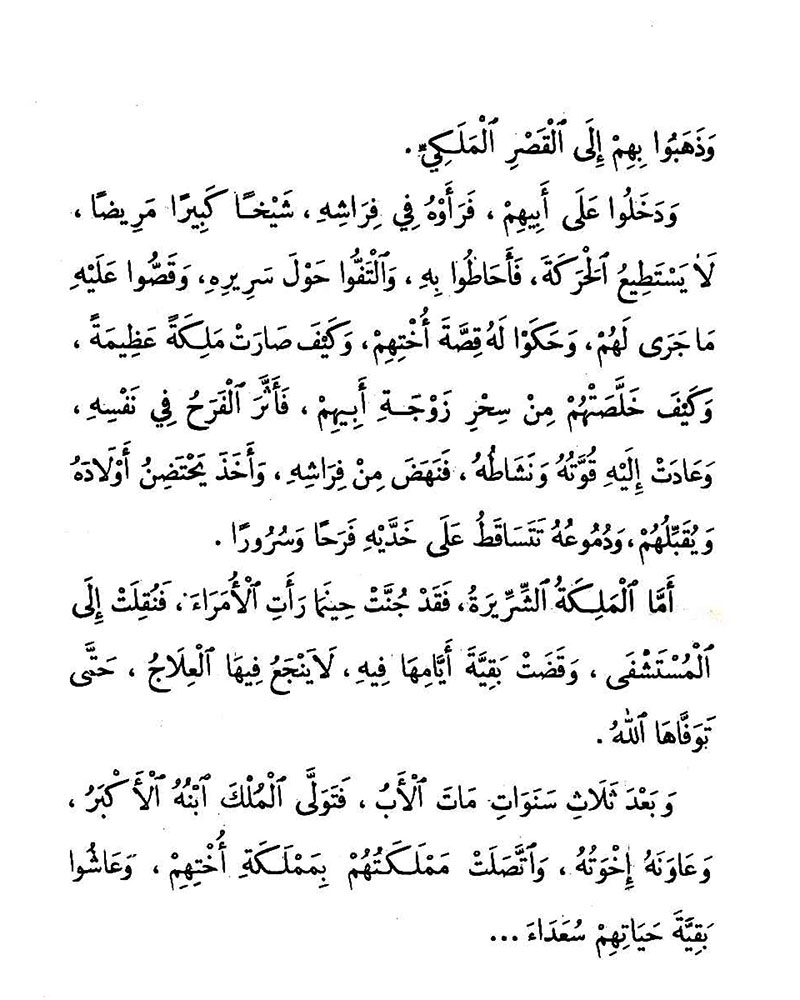 وَذَهَبُوا بِهِمْ إِلَى ٱلْقَصْرِ ٱلْمَلَكِيِّ.
وَدَخَلُوا عَلَى أَبِيهِمْ ، فَرَأَوْهُ فِي فِرَاشِهِ ، شَيْخًا كَبِيرًا مَرِيضًا ،
لَا يَسْتَطِيعُ ٱلْحَرَكَةَ ، فَأَحَاطُوا بِهِ ، وَٱلْتَفُّوا حَوْلَ سَرِيرِهِ، وَقَصُّوا عَلَيْهِ
مَا جَرَى لَهُمْ ، وَحَكَوْا لَهُ قِصَّةَ أُخْتِهِمْ، وَكَيْفَ صَارَتْ مَلِكَةً عَظِيمَةً ،
وَكَيْفَ خَلَّصَتْهُمْ مِنْ سِحْرِ زَوْجَةِ أَبِيهِمْ ، فَأَثَّرَ ٱلْفَرَحُ فِي نَفْسِهِ ،
وَعَادَتْ إِلَيْهِ قُوَّتُهُ وَنَشَاطُهُ ، فَنَهَضَ مِنْ فِرَاشِهِ ، وَأَخَذَ يَحْتَضِنُ أَوْلَادَهُ
وَيُقَبِّلُهُمْ، وَدُمُوعُهُ تَتَسَاقَطُ عَلَى خَدَّيْهِ فَرَحًا وَسُرُورًا .
أَمَّا ٱلْمَلِكَةُ ٱلشِّرِّيرَةُ، فَقَدْ جُنَّتْ حِينَمَا رَأَتِ ٱلْأُمَرَاءَ ، فَنُقِلَتْ إِلَى
ٱلْمُسْتَشْفَى ، وَقَضَتْ بَقِيَّةَ أَيَّامِهَا فِيهِ ، لَا يَنْجَعُ فِيهَا ٱلْعِلَاجُ ، حَتَّى
تَوَفَّاهَا ٱللهُ .
وَبَعْدَ ثَلَاثِ سَنَوَاتٍ مَاتَ ٱلْأَبُ ، فَتَوَلَّى ٱلْمُلْكَ ٱبْنُهُ ٱلْأَكْبَرُ ،
وَعَاوَنَهُ إِخْوَتُهُ ، وَٱتَّصَلَتْ مَمْلَكَتُهُمْ بِمَمْلَكَةِ أُخْتِهِمْ ، وَعَاشُوا
بَقِيَّةَ حَيَاتِهِمْ سُعَدَاءَ ...